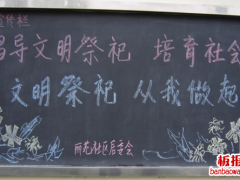 宣传栏
倡导文明祭祀 培育社会
文明祭祀 从我做起
丽苑社区居委会
板报
banbaowa